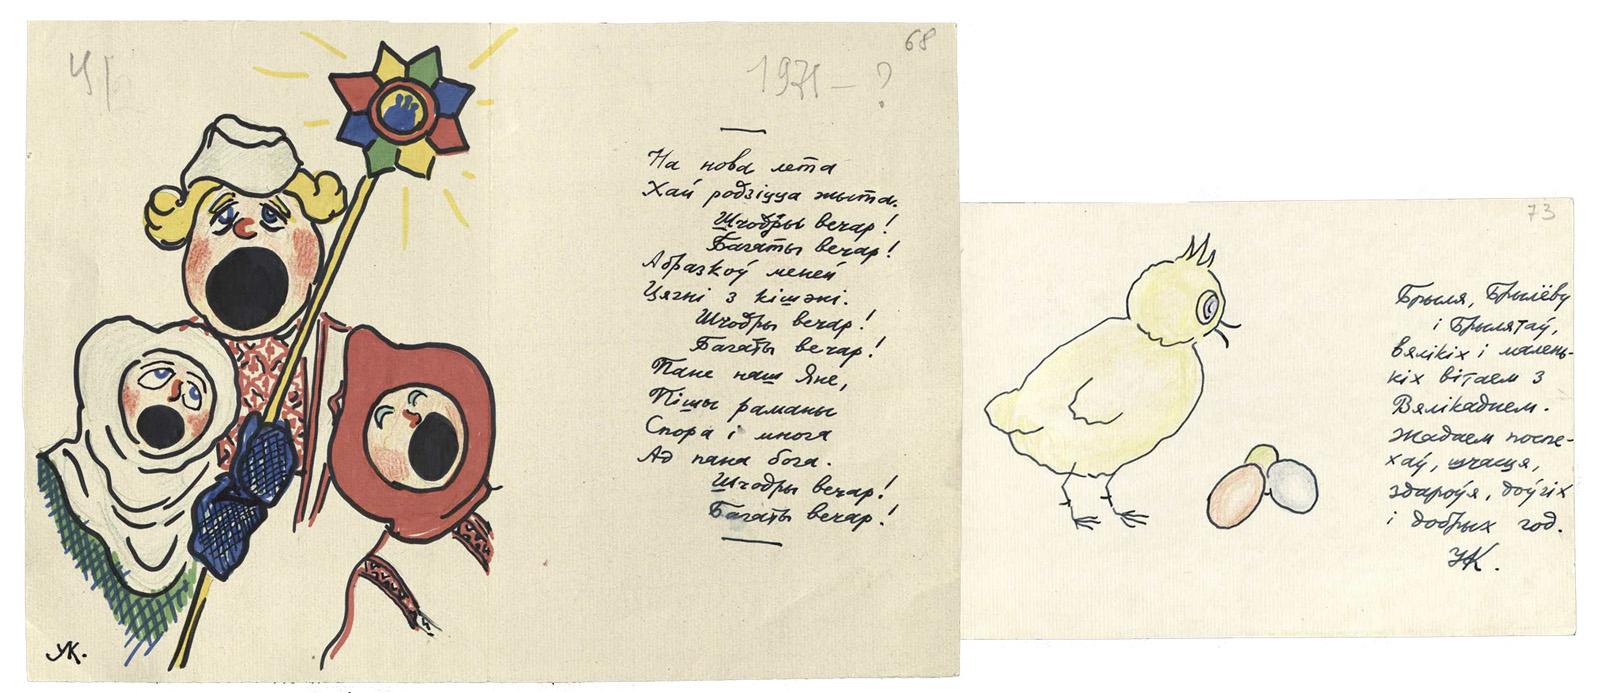 68
1971 – ?
На нова лета
Хай родзіцца жыта.
Шчодры вечар!
Багаты вечар!
Абразкоў меней
Цягні з кішэні.
Шчодры вечар!
Багаты вечар!
Пане наш Яне,
Пішы раманы
Спора і многа
Ад пана бога.
Шчодры вечар!
Багаты вечар!
УК.
73
Брыля, Брылёву
і Брылятаў,
вялікіх і малень-
кіх вітаем з
Вялікаднем.
Жадаем поспе-
хаў, шчасця,
здароўя, доўгіх
і добрых год.
УК.